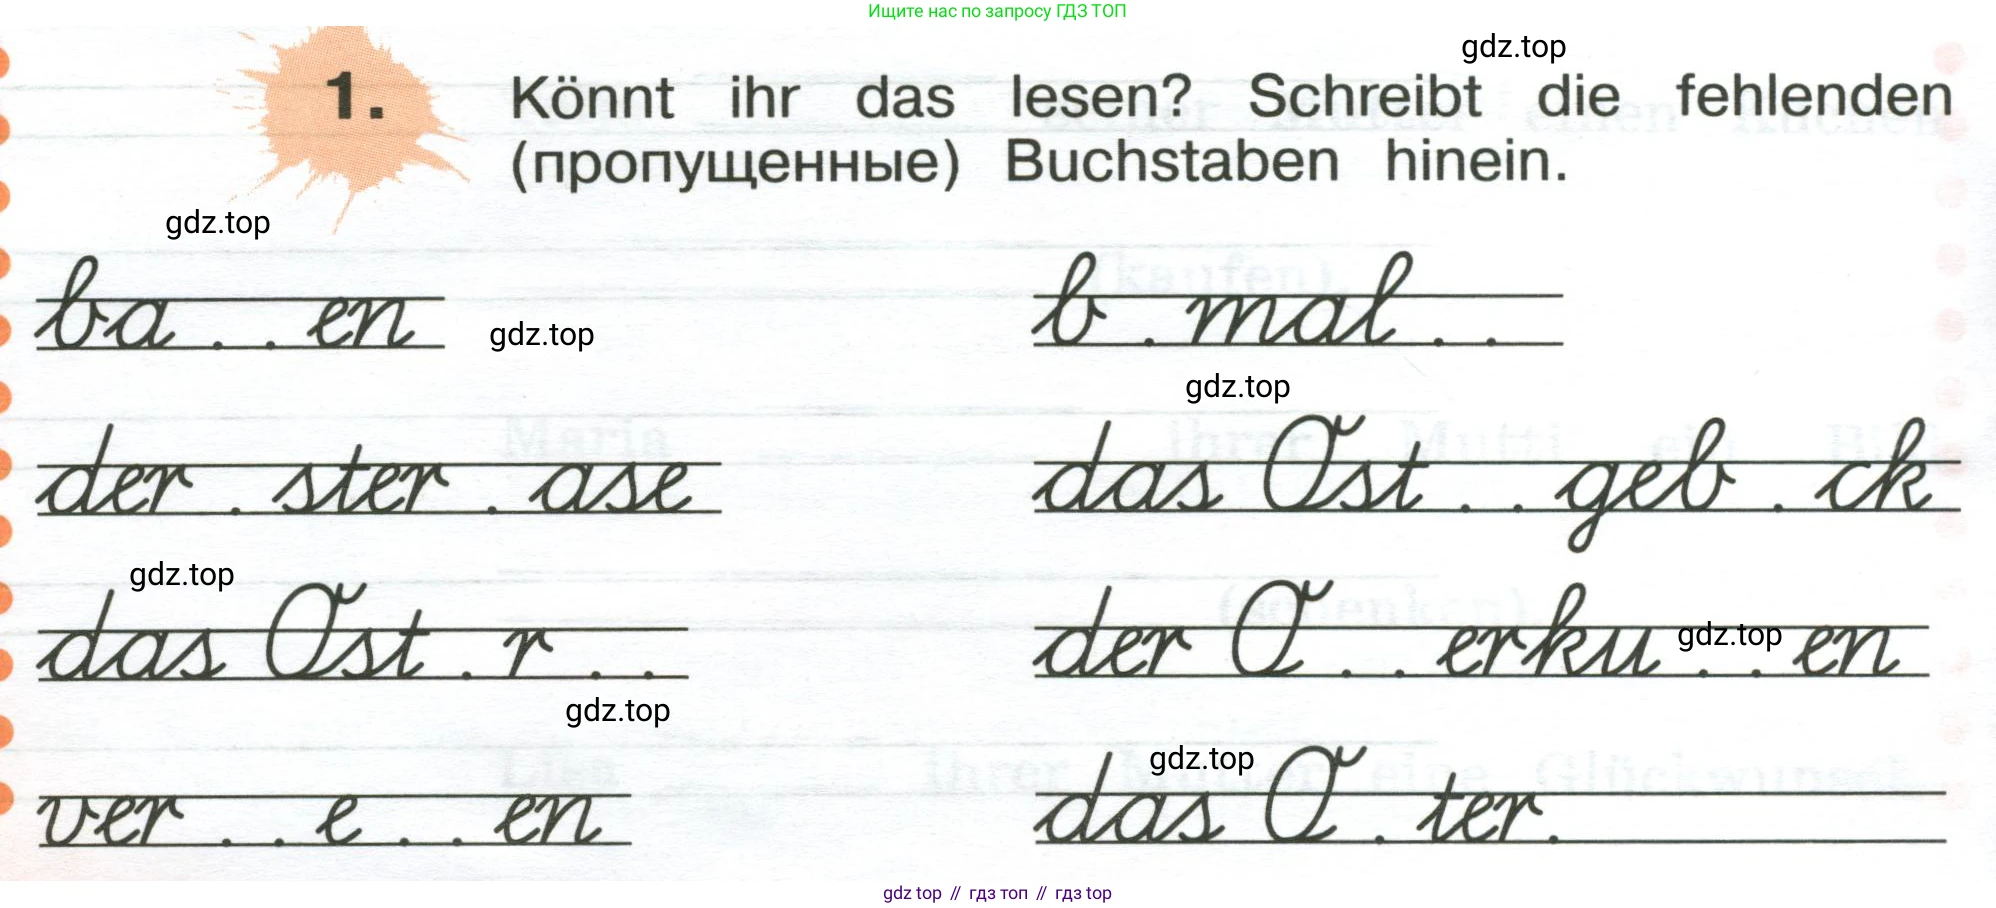 Ищите нас по запросу ГДЗ ТОП
gdz.top
1. Könnt ihr das lesen? Schreibt die fehlenden
(пропущенные) Buchstaben hinein.
gdz.top
ba . . en gdz.top b . mal . .
gdz.top
der . ster . ase das Ost . . geb . ck
gdz.top
das Ost . r . . der O . . erku gdz.top . . en
gdz.top
gdz.top
ver . . e . . en das O . ter.
gdz top // гдз топ // гдз top